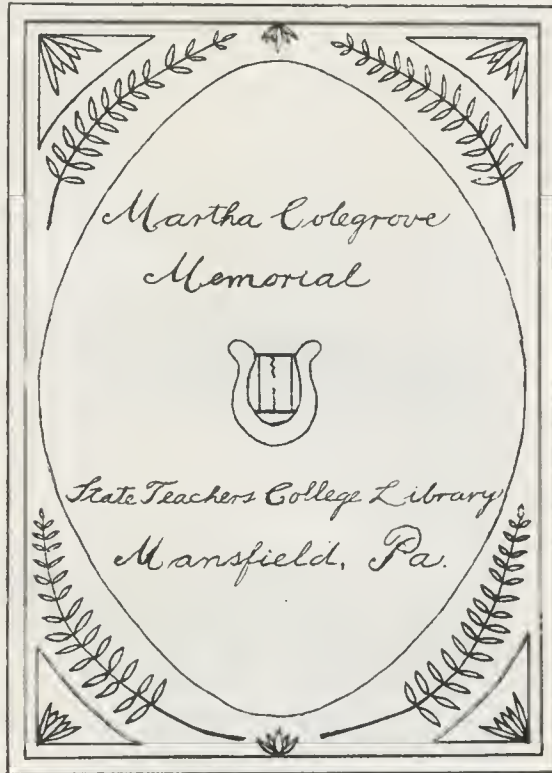 Martha Colegrove
Memorial
State Teachers College Library
Mansfield, Pa.